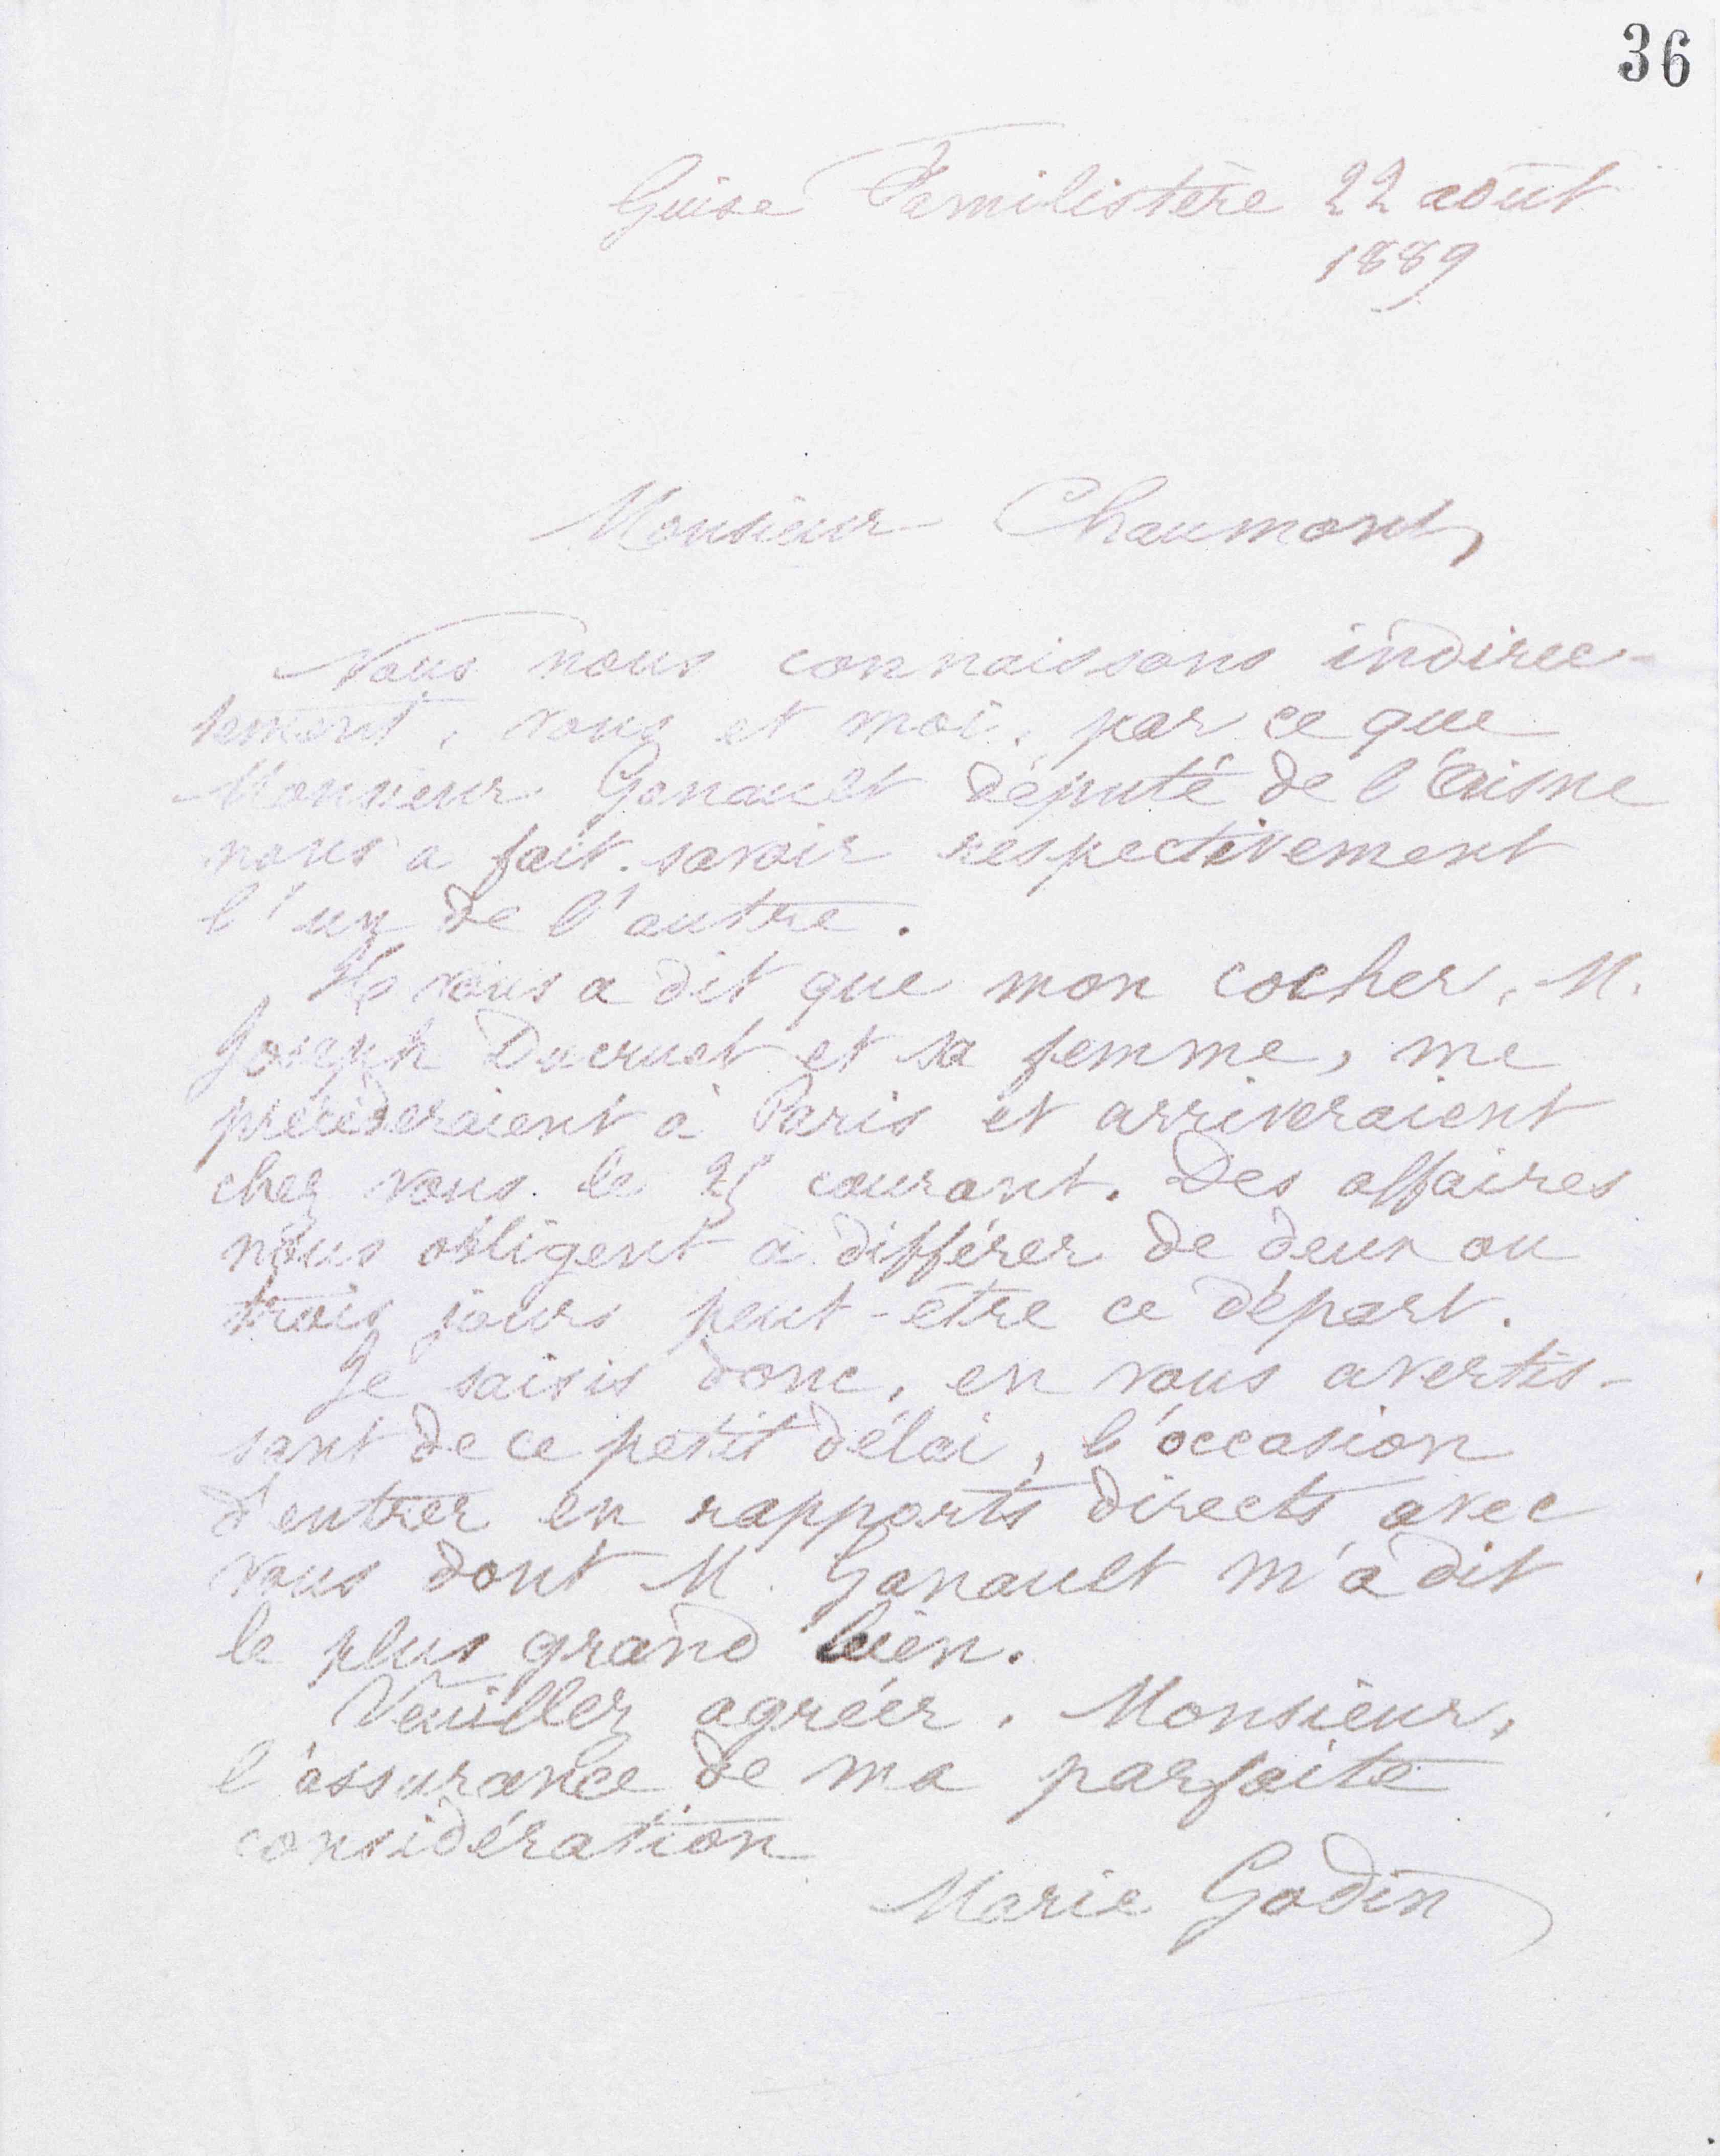 36
Guise Familistère 22 août
1889
Monsieur Chaumont,
Nous nous connaissons indirec-
tement, vous et moi, par ce que
Monsieur Ganault député de l'Aisne
nous a fait savoir respectivement
l'un de l'autre.
Il vous a dit que mon cocher, M.
Joseph Ducruet et sa femme, me
précèderaient à Paris et arriveraient
chez vous le 25 courant. Des affaires
nous obligent à différer de deux ou
trois jours peut-être ce départ.
Je saisis donc, en vous avertis-
sant de ce petit délai, l'occasion
d'entrer en rapports directs avec
vous dont M. Ganault m'a dit
le plus grand bien.
Veuillez agréer, Monsieur,
l'assurance de ma parfaite
considération
Marie Godin